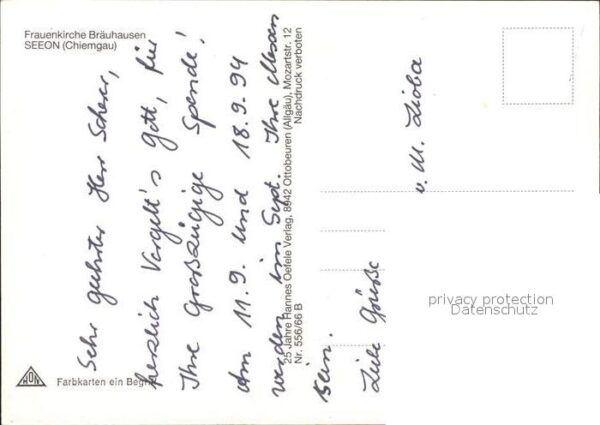 Frauenkirche Bräuhausen
SEEON (Chiemgau)
Sehr geehrter Herr Scherer,
herzlich Vergelt's Gott, für
Ihre Großzügige Spende!
Am 11.9. und 18.9.94
werden im Sept. Ihre Messen
sein.
Liebe Grüße
v. M. Lioba
25 Jahre Hannes Oefele Verlag, 8942 Ottobeuren (Allgäu), Mozartstr. 12
Nr. 556/66 B
Nachdruck verboten
Farbkarten ein Begriff
privacy protection
Datenschutz